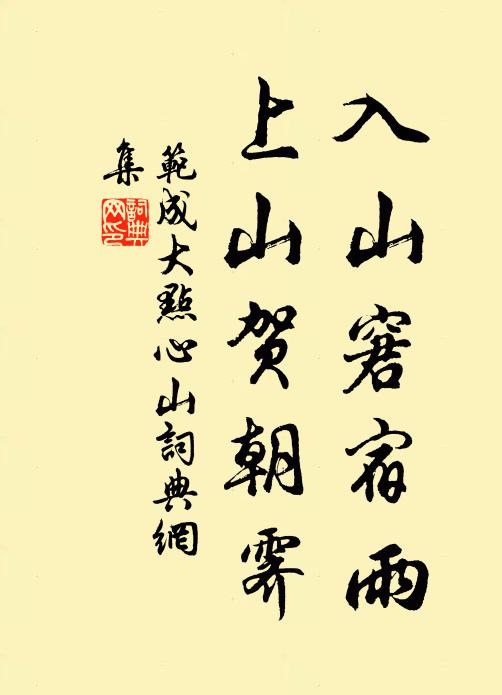 入山窘宿雨
上山贺朝霁
範成大點心山詞典網
集
詞典
网印